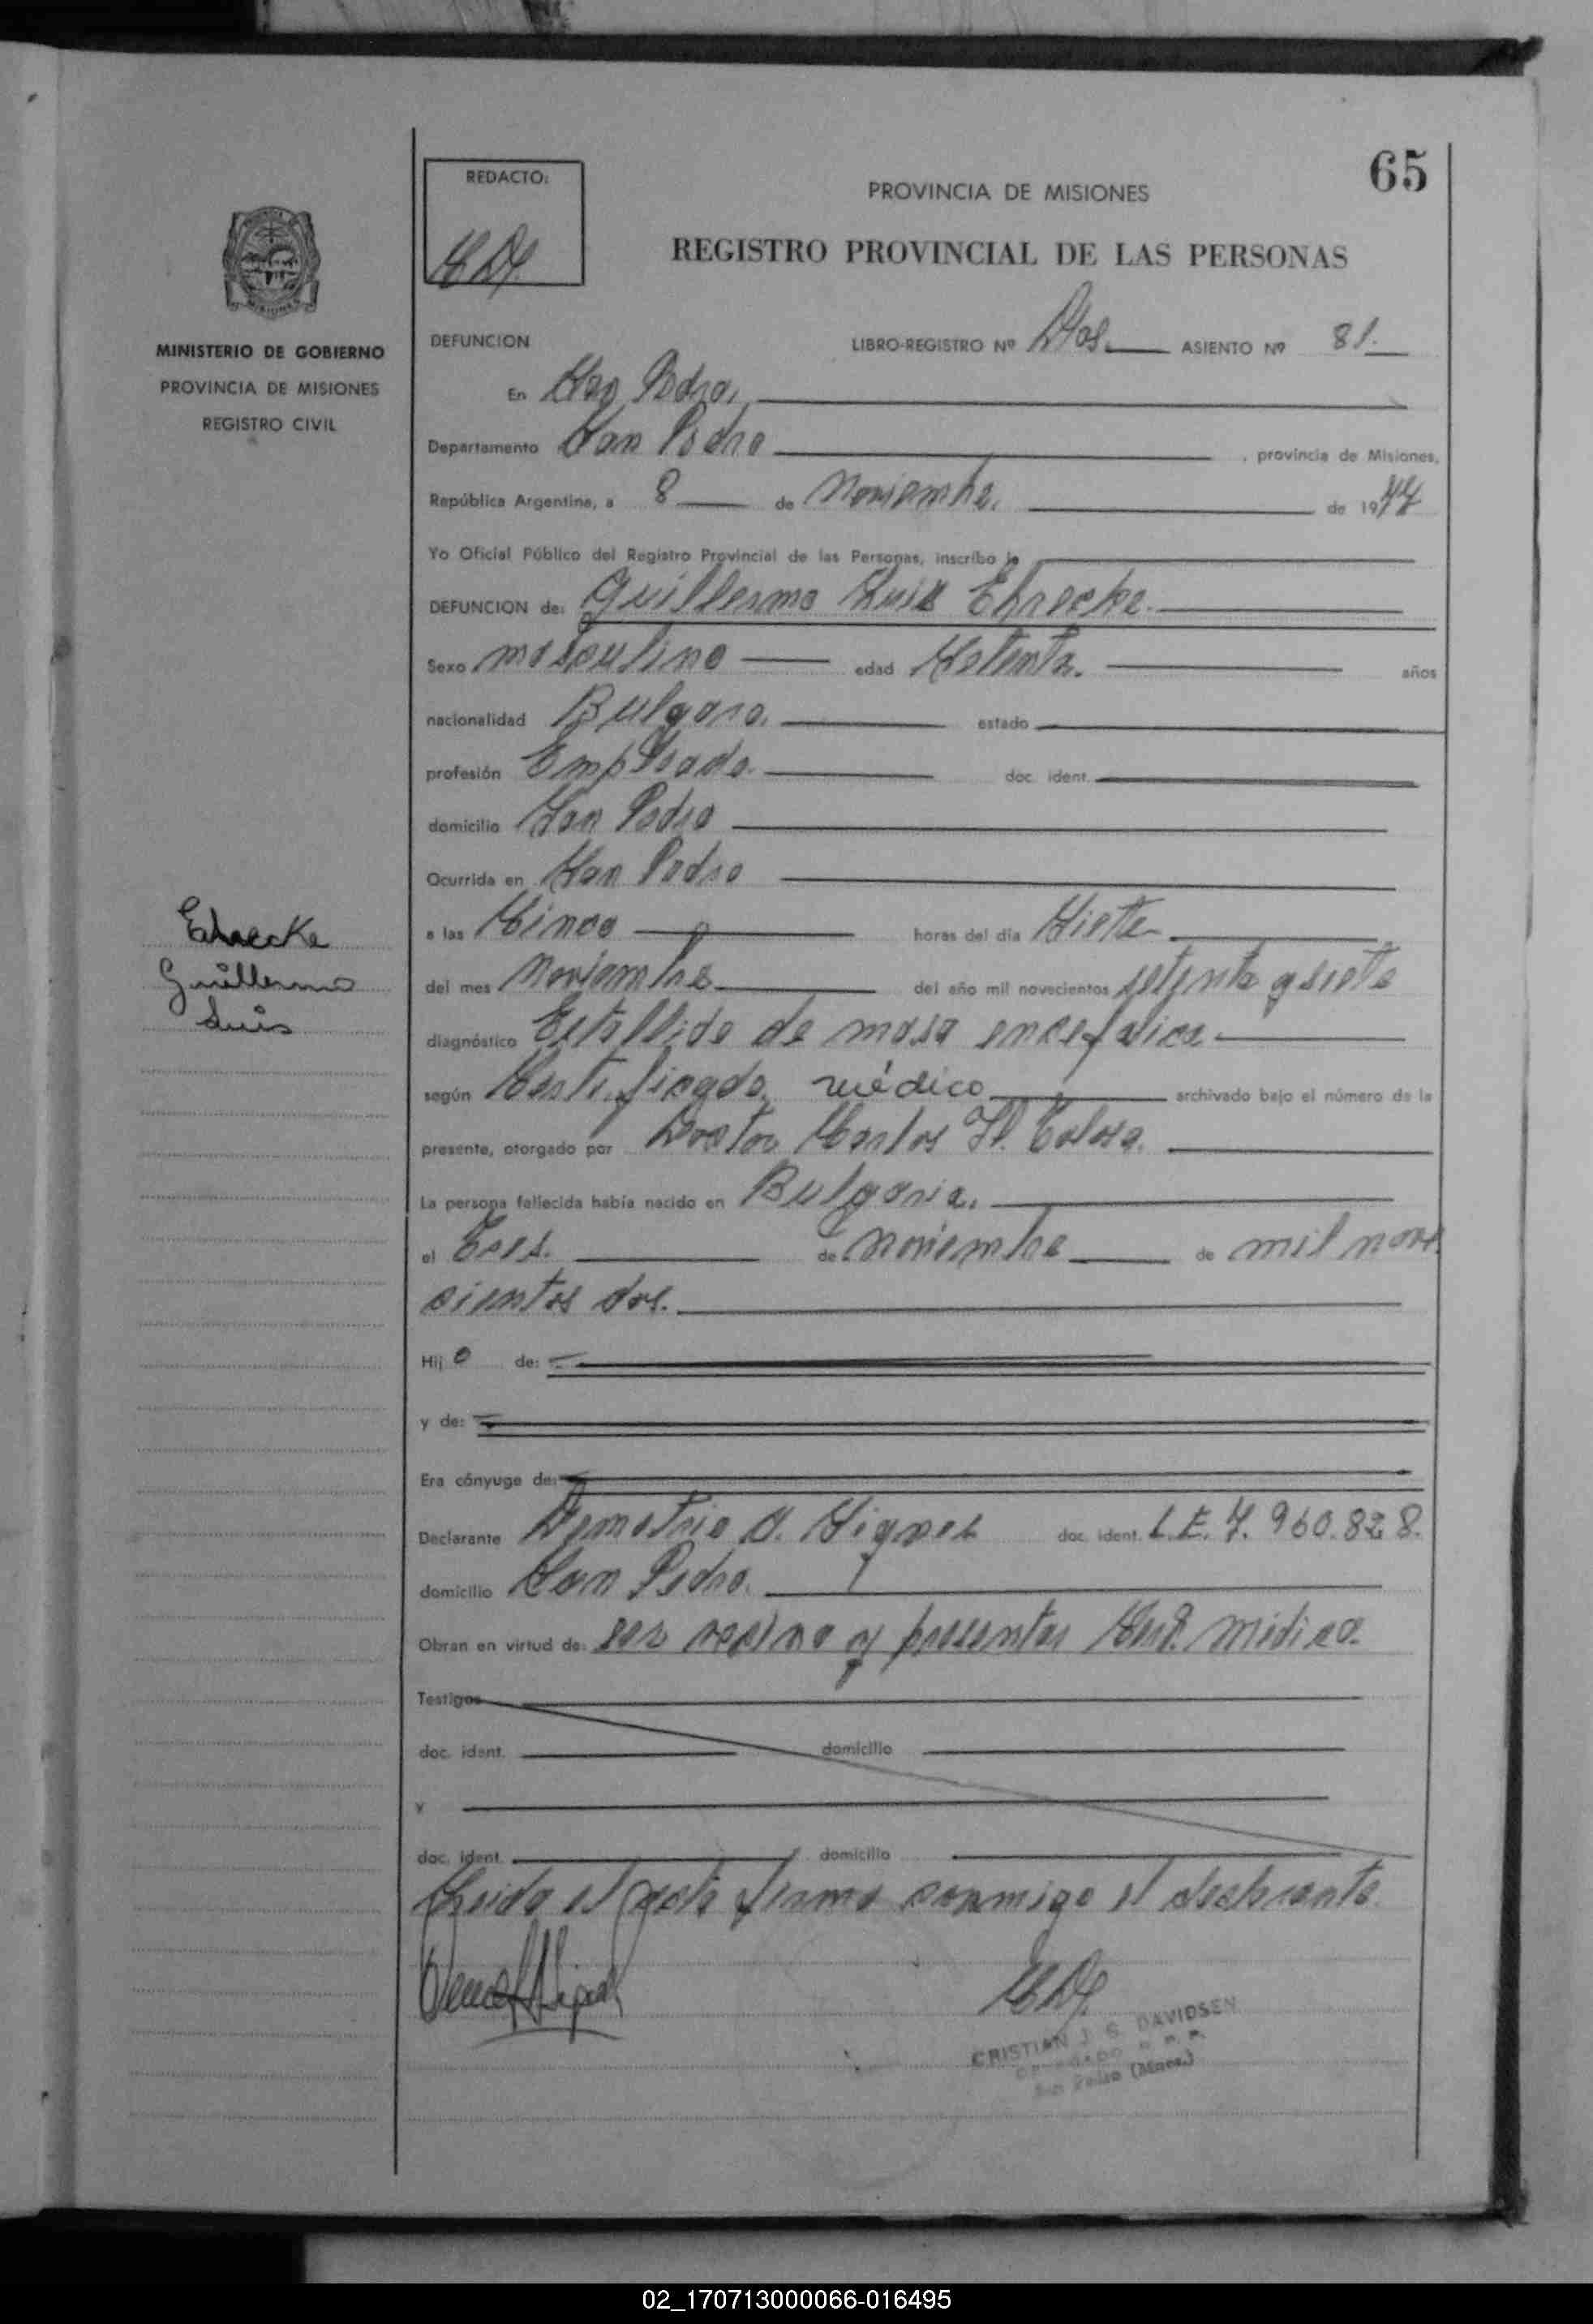 65
REDACTO:
PROVINCIA DE MISIONES
REGISTRO PROVINCIAL DE LAS PERSONAS
MINISTERIO DE GOBIERNO
PROVINCIA DE MISIONES
REGISTRO CIVIL
DEFUNCION LIBRO-REGISTRO Nº Dos. ASIENTO Nº 81.
En San Pedro,
Departamento San Pedro , provincia de Misiones,
República Argentina, a 8 de Noviembre. de 1977
Yo Oficial Público del Registro Provincial de las Personas, inscribo la
DEFUNCION de: Guillermo Luis Ehrecke.
Sexo masculino edad Setenta. años
nacionalidad Bulgaro. estado
profesión Empleado. doc. ident.
domicilio San Pedro
Ocurrida en San Pedro
a las Cinco horas del día Siete
del mes Noviembre del año mil novecientos setenta y siete
diagnóstico Estallido de masa encefalica
según Certificado médico archivado bajo el número de la
presente, otorgado por Doctor Carlos
La persona fallecida había nacido en Bulgaria.
el Tres. de noviembre de mil nove
cientos dos.
Hij o de:
y de:
Era cónyuge de:
Declarante Demetrio doc. ident. L.E. 7.960.828.
domicilio San Pedro.
Obran en virtud de: ser vecino y presentar Cert. médico.
Testigos
doc. ident. domicilio
y
doc. ident. domicilio
Leida el acta firma conmigo el declarante.
CRISTIAN J. G. DAVIDSEN
San Pedro (Mnes.)
Ehrecke
Guillermo
Luis
02_170713000066-016495